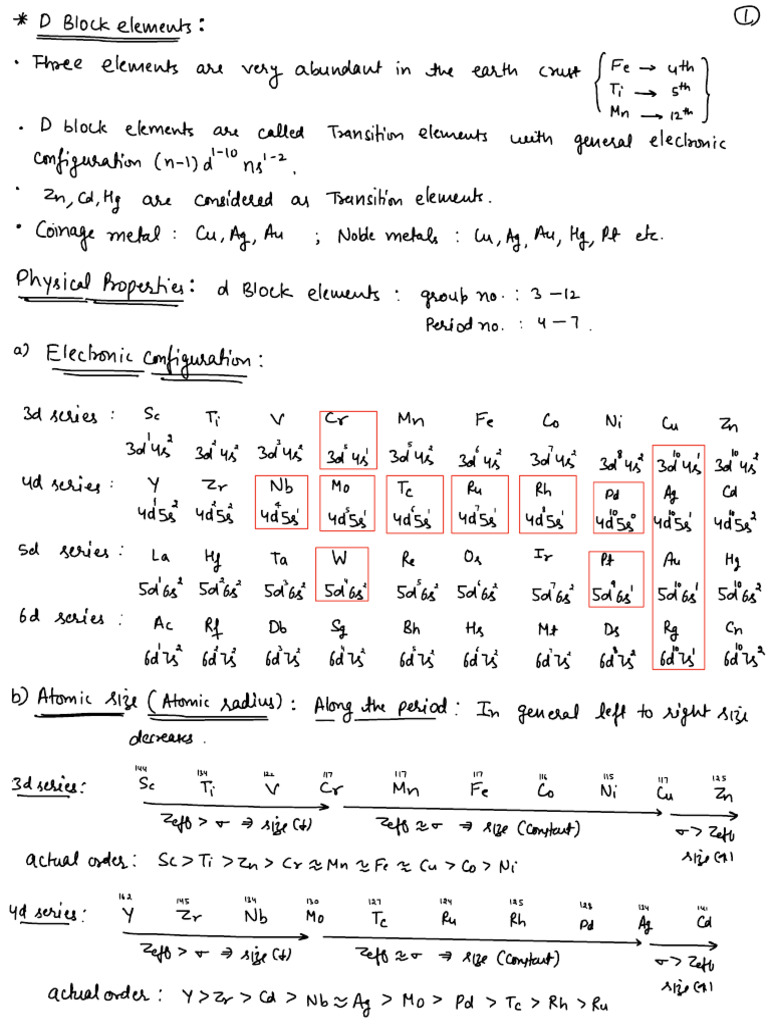 ①
* D Block elements :
• Three elements are very abundant in the earth crust { Fe → 4th
Ti → 5th
Mn → 12th }
• D block elements are called Transition elements with general electronic
configuration (n-1)d¹⁻¹⁰ ns¹⁻².
• Zn, Cd, Hg are considered as Transition elements.
• Coinage metal : Cu, Ag, Au ; Noble metals : Cu, Ag, Au, Hg, Pt etc.
Physical Properties : d Block elements : group no. : 3 – 12
Period no. : 4 – 7 .
a) Electronic Configuration :
3d series : Sc Ti V Cr Mn Fe Co Ni Cu Zn
3d¹4s² 3d²4s² 3d³4s² 3d⁵4s¹ 3d⁵4s² 3d⁶4s² 3d⁷4s² 3d⁸4s² 3d¹⁰4s¹ 3d¹⁰4s²
4d series : Y Zr Nb Mo Tc Ru Rh Pd Ag Cd
4d¹5s² 4d²5s² 4d⁴5s¹ 4d⁵5s¹ 4d⁶5s¹ 4d⁷5s¹ 4d⁸5s¹ 4d¹⁰5s⁰ 4d¹⁰5s¹ 4d¹⁰5s²
5d series : La Hf Ta W Re Os Ir Pt Au Hg
5d¹6s² 5d²6s² 5d³6s² 5d⁴6s² 5d⁵6s² 5d⁶6s² 5d⁷6s² 5d⁹6s¹ 5d¹⁰6s¹ 5d¹⁰6s²
6d series : Ac Rf Db Sg Bh Hs Mt Ds Rg Cn
6d¹7s² 6d²7s² 6d³7s² 6d⁴7s² 6d⁵7s² 6d⁶7s² 6d⁷7s² 6d⁸7s² 6d¹⁰7s¹ 6d¹⁰7s²
b) Atomic size (Atomic radius) : Along the period : In general left to right size
decreases .
144 134 122 117 117 117 116 115 117 125
3d series : Sc Ti V Cr Mn Fe Co Ni Cu Zn
Zeff > σ ⇒ size (↓) Zeff ≈ σ ⇒ size (Constant) σ > Zeff
size (↑)
actual order : Sc > Ti > Zn > Cr ≈ Mn ≈ Fe ≈ Cu > Co > Ni
162 145 134 130 127 124 125 128 134 141
4d series : Y Zr Nb Mo Tc Ru Rh Pd Ag Cd
Zeff > σ ⇒ size (↓) Zeff ≈ σ ⇒ size (Constant) σ > Zeff
size (↑)
actual order : Y > Zr > Cd > Nb ≈ Ag > Mo > Pd > Tc > Rh > Ru